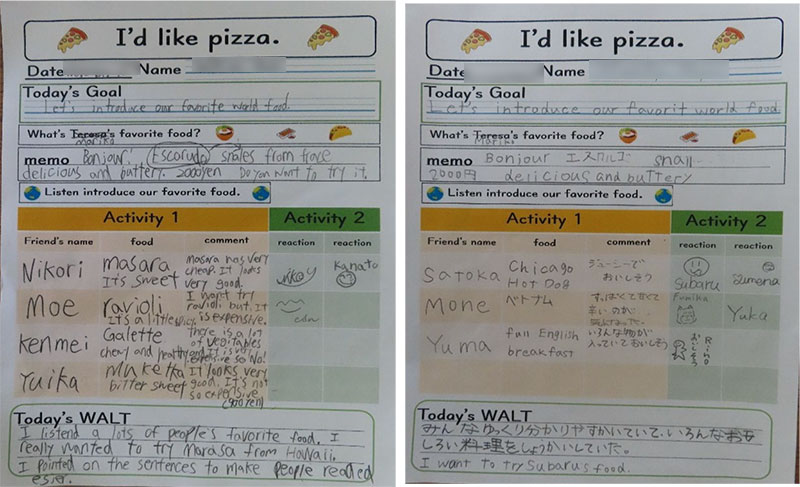 I'd like pizza.
Date Name
Today's Goal
Let's introduce our favorite world food.
What's Teresa's favorite food?
Mariko
memo Bonjour! Escorudo snales from frace
delicious and buttery. 2000yen Do you want to try it.
Listen introduce our favorite food.
Activity 1 Activity 2
Friend's name food comment reaction reaction
Nikori masara It's sweet masara has very cheap. It looks very good. Kanato
Moe ravioli It's a little spicy. I want try ravioli but. It is expensive.
Kenmei Galette cheay and healthy There is a lot of vegitables and it is very expensive so No!
Yuika muketka bitter sweet It looks very good. It's not so expensive (900yen)
Today's WALT
I listend a lots of people's favorite food. I
really wanted to try Marasa from Howaii.
I pointed on the sentences to make people readed
esier.
I'd like pizza.
Date Name
Today's Goal
Let's introduce our favorit world food.
What's Teresa's favorite food?
Mariko
memo Bonjour エスカルゴ snail
2000円 delicious and buttery
Listen introduce our favorite food.
Activity 1 Activity 2
Friend's name food comment reaction reaction
Satoka Chicago Hot Dog ジューシーでおいしそう Subaru
Mone ベトナム すっぱくて甘くて辛いのが Fumika Yuka
Yuma full English breakfast いろんな物が入っていておいしそう おいしそう Rino
Today's WALT
みんなゆっくり分かりやすかいていて、いろんなおも
しろい料理をしょうかいしていた。
I want to try Subaru's food.